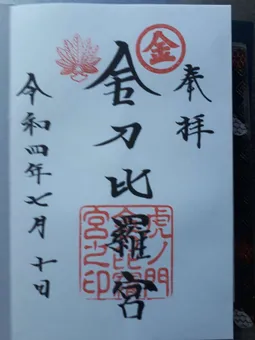 奉拝
金
金刀比羅宮
虎ノ門
宮之印
令和四年七月十日